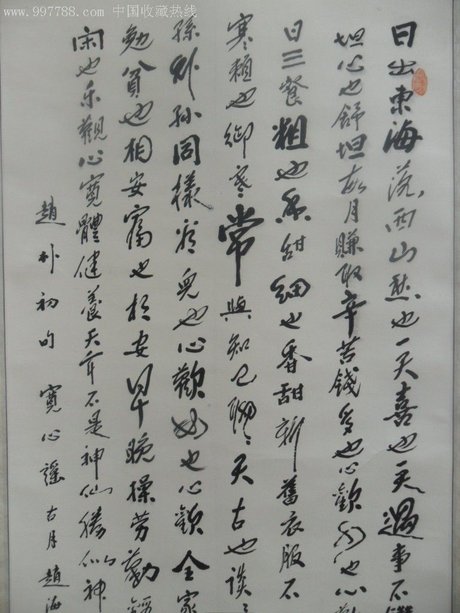 www.997788.com 中国收藏热线
日出東海落西山愁也一天喜也一天遇事不
坦心也舒坦每月賺取辛苦錢多也心歡少也心
日三餐粗也香甜細也香甜新舊衣服不
寒賴也御寒常與知己聊聊天古也談談
孫外孫同樣看兒也心歡女也心歡全家
勉貧也相安富也相安早晚操勞勤鍛
闲也樂觀心寬體健養天年不是神仙勝似神
趙朴初句 寬心謠 古月趙海